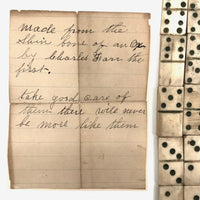 made from the
Shin bone of an Ox
by Charles Farr the
first.
take good care of
them there will never
be more like them